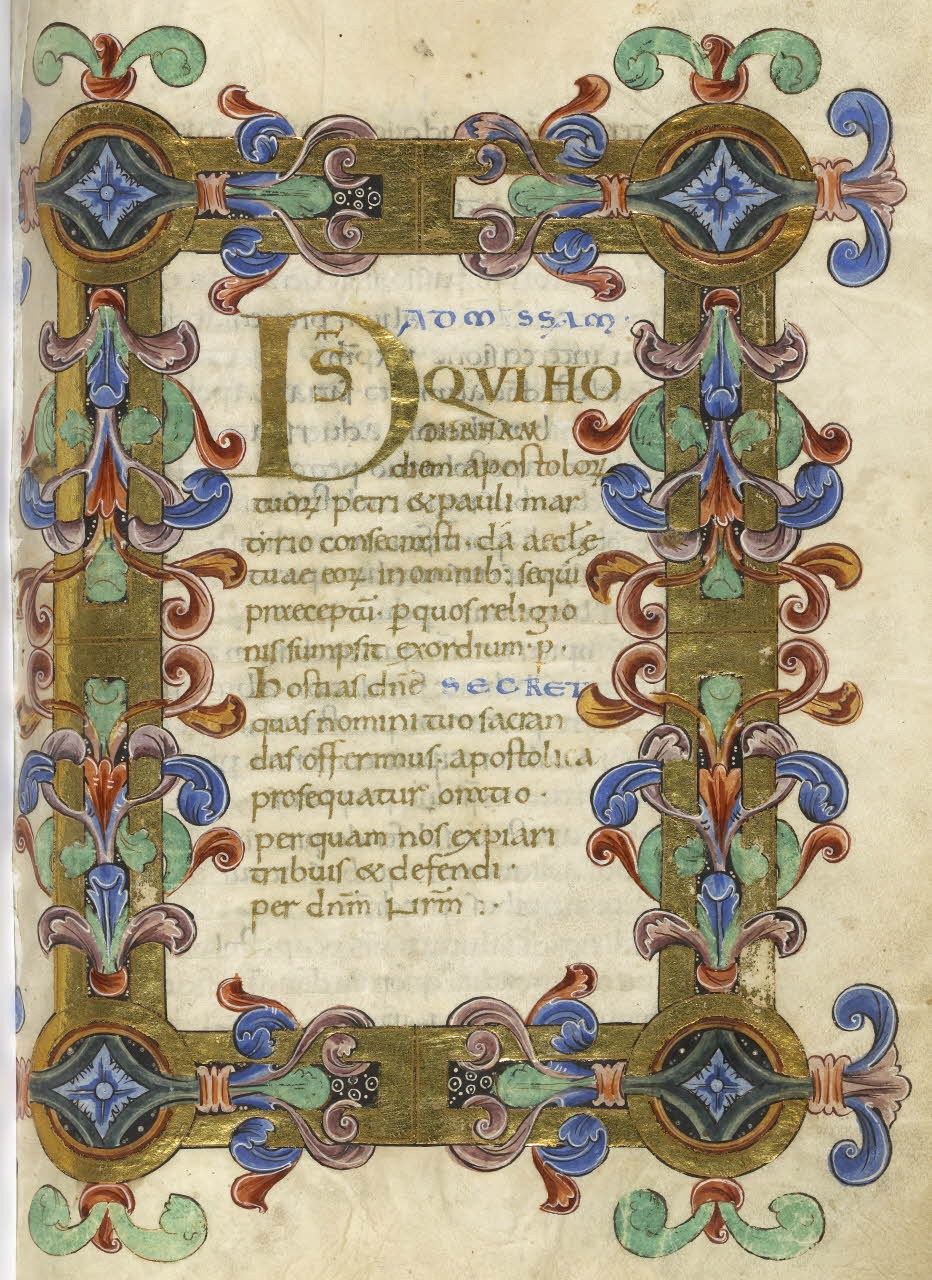 AD MISSAM·
DS QUI HO
DIERNAM
diem apostoloꝝ
tuoꝝ petri & pauli mar
tyrio consecrasti· dā aecclę
tuae eoꝝ in omnib; sequi
praeceptū· ꝑ quos religio
nis sumpsit exordium· ꝑ·
Hostias dn̄e SECRET
quas nomini tuo sacran
das offerimus· apostolica
prosequatur oratio·
per quam nos expiari
tribuis & defendi·
per dn̄m